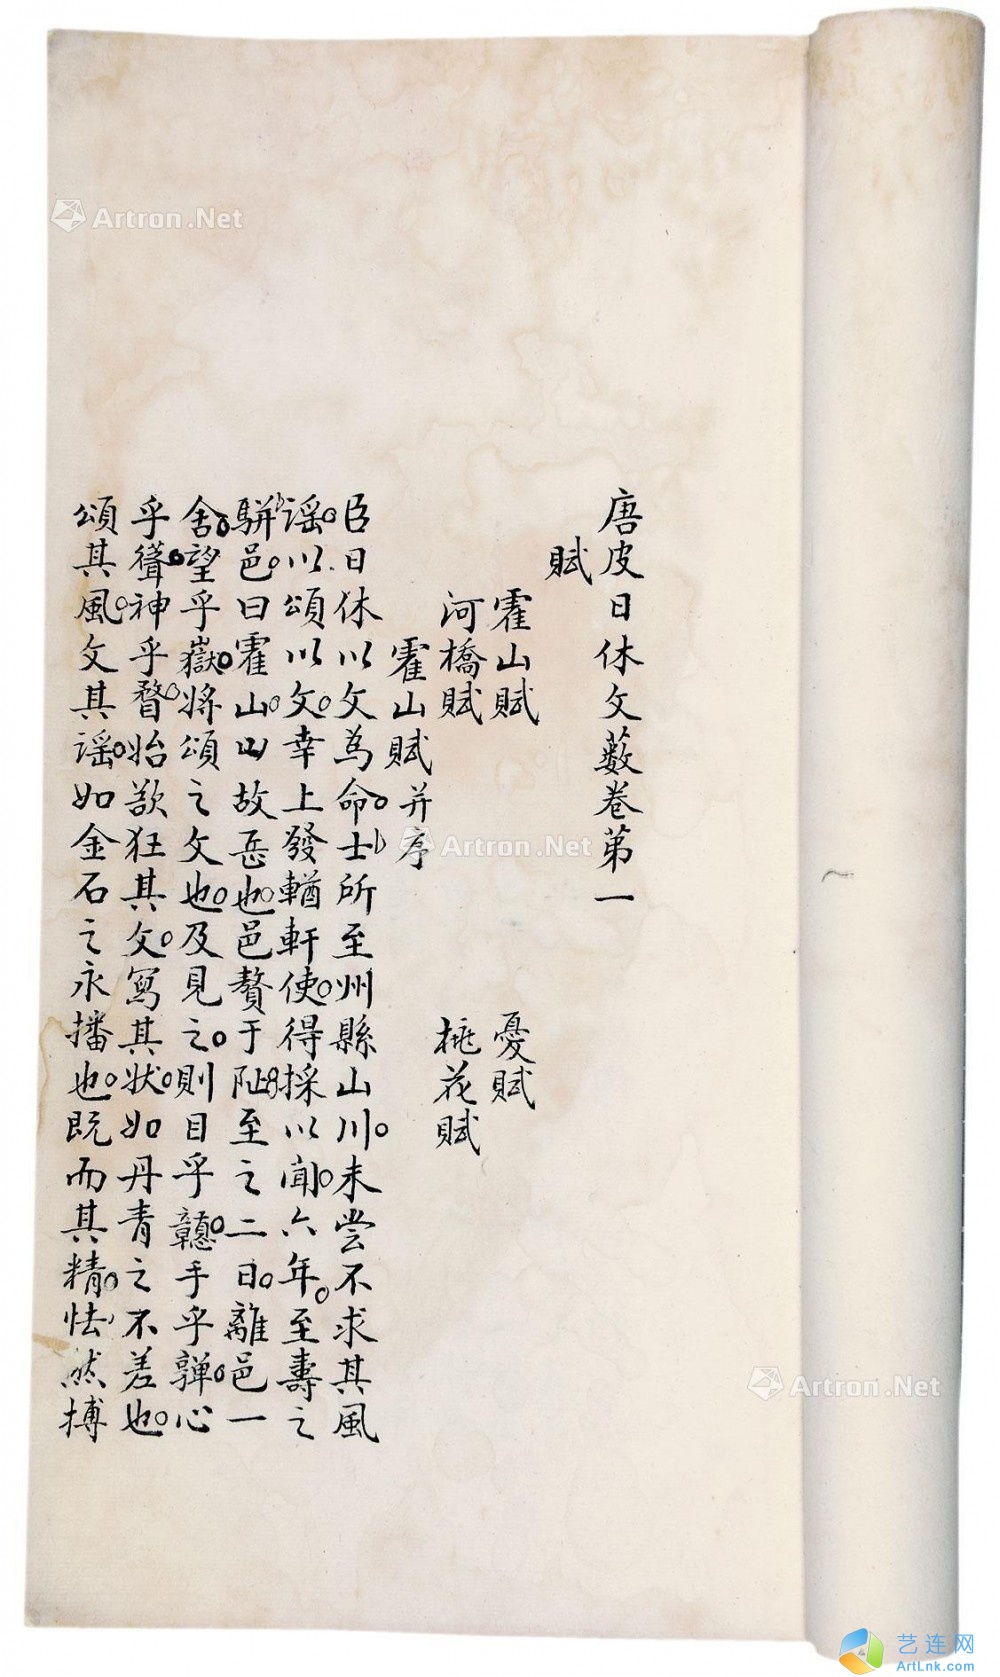 唐皮日休文藪卷第一
賦
霍山賦 憂賦
河橋賦 桃花賦
霍山賦并序
臣日休以文為命士所至州縣山川未嘗不求其風
謠以頌以文幸上發輶軒使得採以聞六年至壽之
騈邑曰霍山山故岳也邑贅于阯至之二日離邑一
舍望乎嶽將頌之文也及見之則目乎戇手乎亸心
乎聳神乎瞀始欲狂其文寫其狀如丹青之不差也
頌其風文其謠如金石之永播也既而其精怯然搏
Artron.Net
Artron.Net
Artron.Net
艺连网
ArtLnk.com